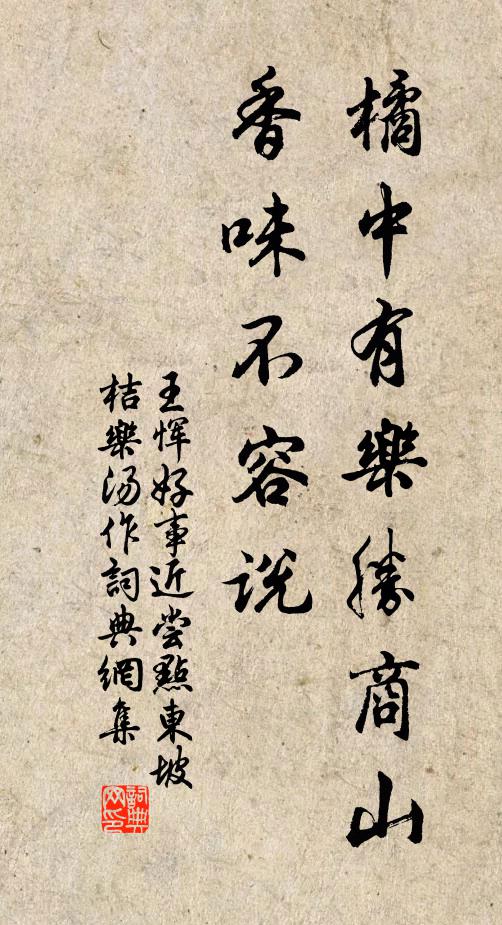 橘中有樂勝商山
香味不容説
王惲好事近嘗點東坡
桔樂湯作詞典網集
詞典网印